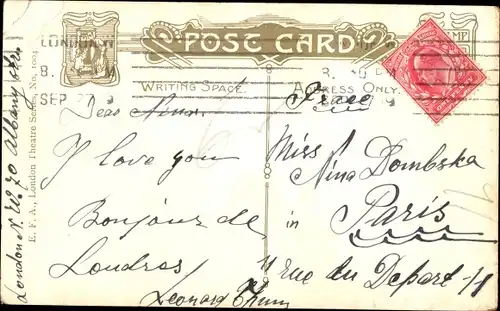 POST CARD
WRITING SPACE.
ADDRESS ONLY.
LONDON
SEP 27 9
Dear Nina
I love you
Bonjour de
Londres
Leonard
Miss
Nina Dombska
in
Paris
11 rue du Depart 11
London N. W. 70 Albany str.
E. F. A., London Theatre Series, No. 1004